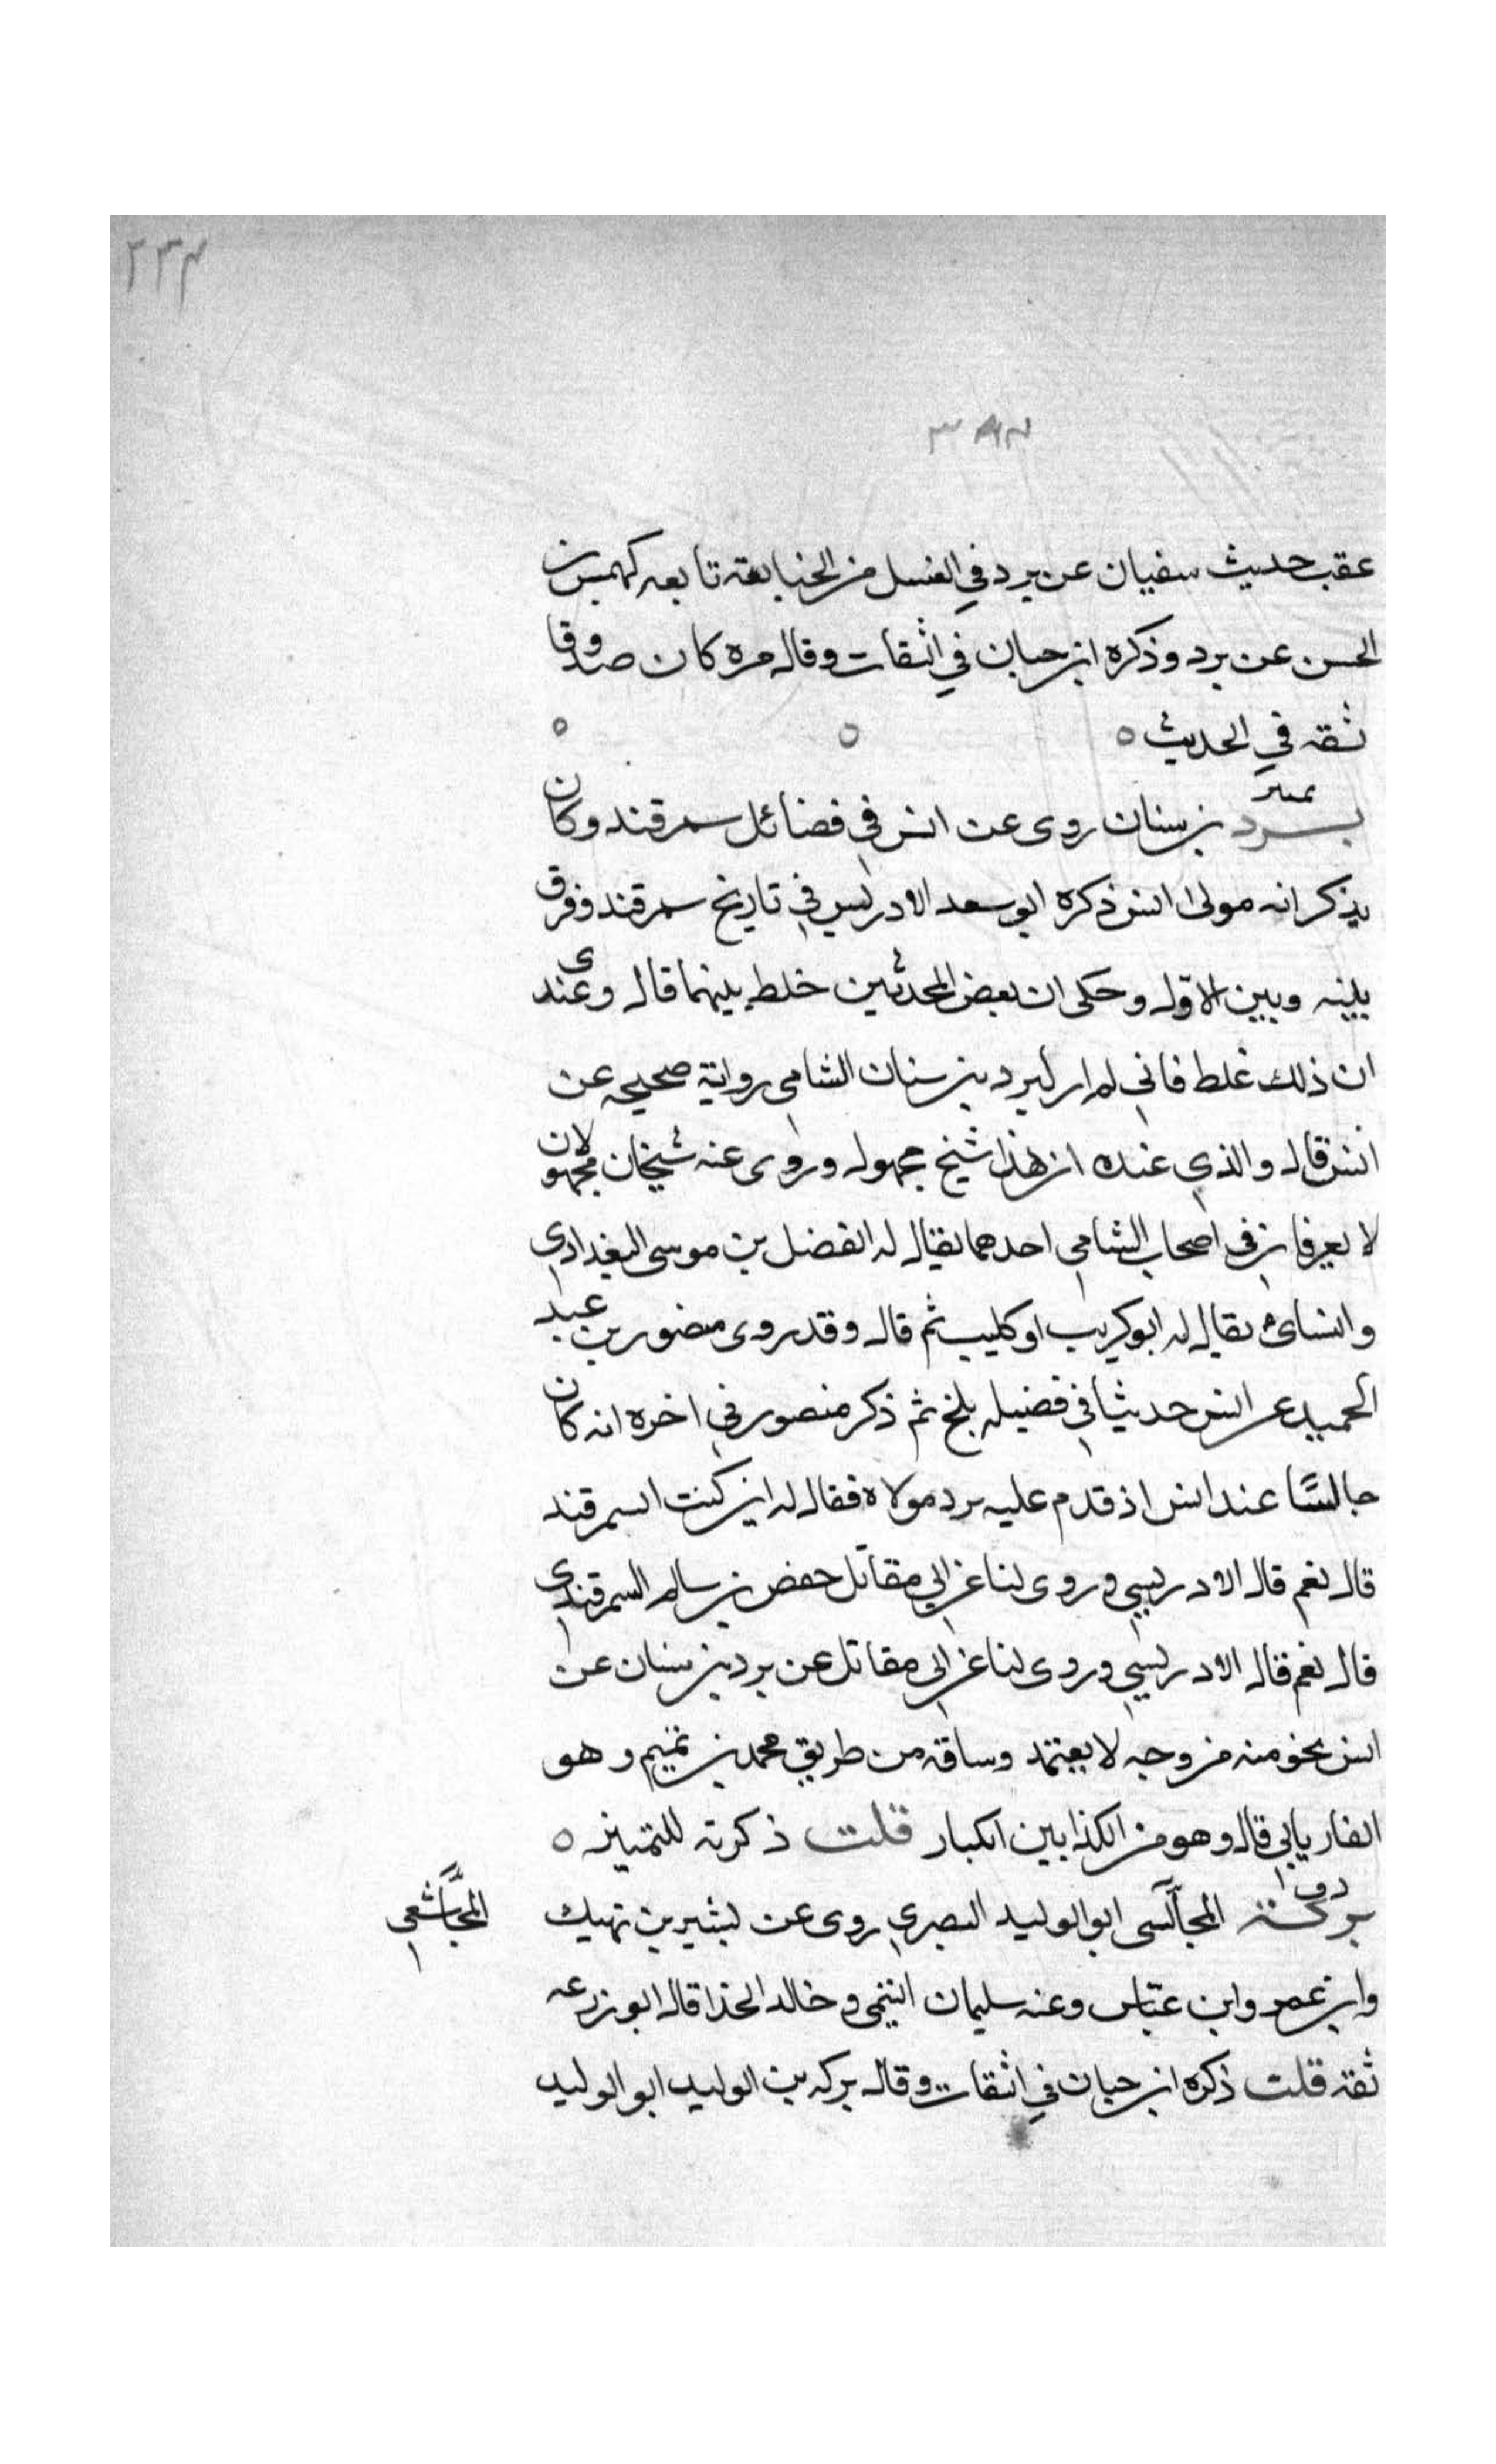 ٢٣٤
٣٨٤
عقب حديث سفيان عن برد في الغسل من الجنابة تابعه كهمس بن
الحسن عن برد وذكره ابن حبان في الثقات وقال مره كان صدوقا
ثقه في الحديث ٥ ٥ ٥
تمييز
برد بن سنان روى عن انس في فضائل سمرقند وكان
يذكر انه مولى انس ذكره ابو سعد الادريسي في تاريخ سمرقند وفرق
بينه وبين الاول وحكى ان بعض المحدثين خلط بينهما قال وعندى
ان ذلك غلط فاني لم ار لبرد بن سنان الشامي رواية صحيحه عن
انس قال والذي عنده ان هذا شيخ مجهول وروى عنه شيخان مجهولان
لا يعرفان في اصحاب الشامي احدهما يقال له الفضل بن موسى البغدادي
والثاني يقال له ابو كريب او كليب ثم قال وقد روى منصور بن عبد
الحميد عن انس حديثا في فضيله بلخ ثم ذكر منصور في اخره انه كان
جالسًا عند انس اذ قدم عليه برد مولاه فقال له اين كنت السمرقند
قال نعم قال الادريسي وروى لنا عن ابي مقاتل حفص بن سالم السمرقندي
قال نعم قال الادريسي وروى لنا عن ابي مقاتل عن برد بن سنان عن
انس نحو منه من وجه لا يعتمد وساقه من طريق محمد بن تميم وهو
الفاريابي قال وهو من الكذابين الكبار قلت ذكرته للتمييز ٥
د ق
بركة المجالسى ابو الوليد البصري روى عن بشير بن نهيك
المجاشعي
وابن عمر وابن عباس وعنه سليمان التيمي وخالد الحذا قال ابو زرعه
ثقة قلت ذكره ابن حبان في الثقات وقال بركه بن الوليد ابو الوليد